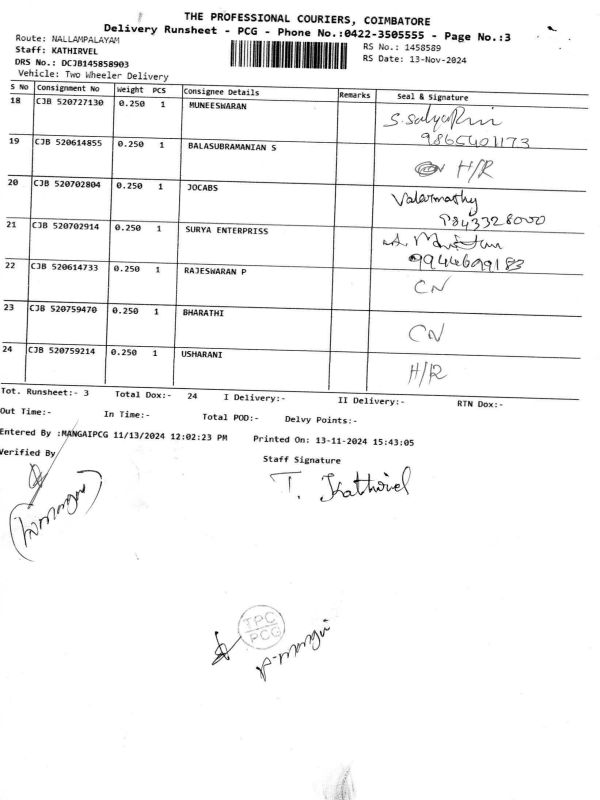 THE PROFESSIONAL COURIERS, COIMBATORE
Delivery Runsheet - PCG - Phone No.:0422-3505555 - Page No.:3
Route: NALLAMPALAYAM
RS No.: 1458589
Staff: KATHIRVEL
RS Date: 13-Nov-2024
DRS No.: DCJB145858903
Vehicle: Two Wheeler Delivery
S No Consignment No Weight PCS Consignee Details Remarks Seal & Signature
18 CJB 520727130 0.250 1 MUNEESWARAN
9865401173
19 CJB 520614855 0.250 1 BALASUBRAMANIAN S H/R
20 CJB 520702804 0.250 1 JOCABS Valarmathy
9843328000
21 CJB 520702914 0.250 1 SURYA ENTERPRISS
9944699183
22 CJB 520614733 0.250 1 RAJESWARAN P CN
23 CJB 520759470 0.250 1 BHARATHI CN
24 CJB 520759214 0.250 1 USHARANI H/R
Tot. Runsheet:- 3 Total Dox:- 24 I Delivery:- II Delivery:- RTN Dox:-
Out Time:- In Time:- Total POD:- Delvy Points:-
Entered By :MANGAIPCG 11/13/2024 12:02:23 PM Printed On: 13-11-2024 15:43:05
Verified By
Staff Signature
T. Kathirvel
TPC
PCG
P-mangai